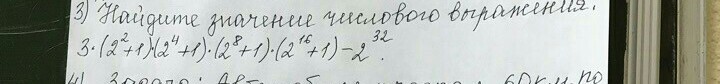 3) Найдите значение числового выражения.
3·(2²+1)·(2⁴+1)·(2⁸+1)·(2¹⁶+1)-2³².
4) Задача:
60 км по